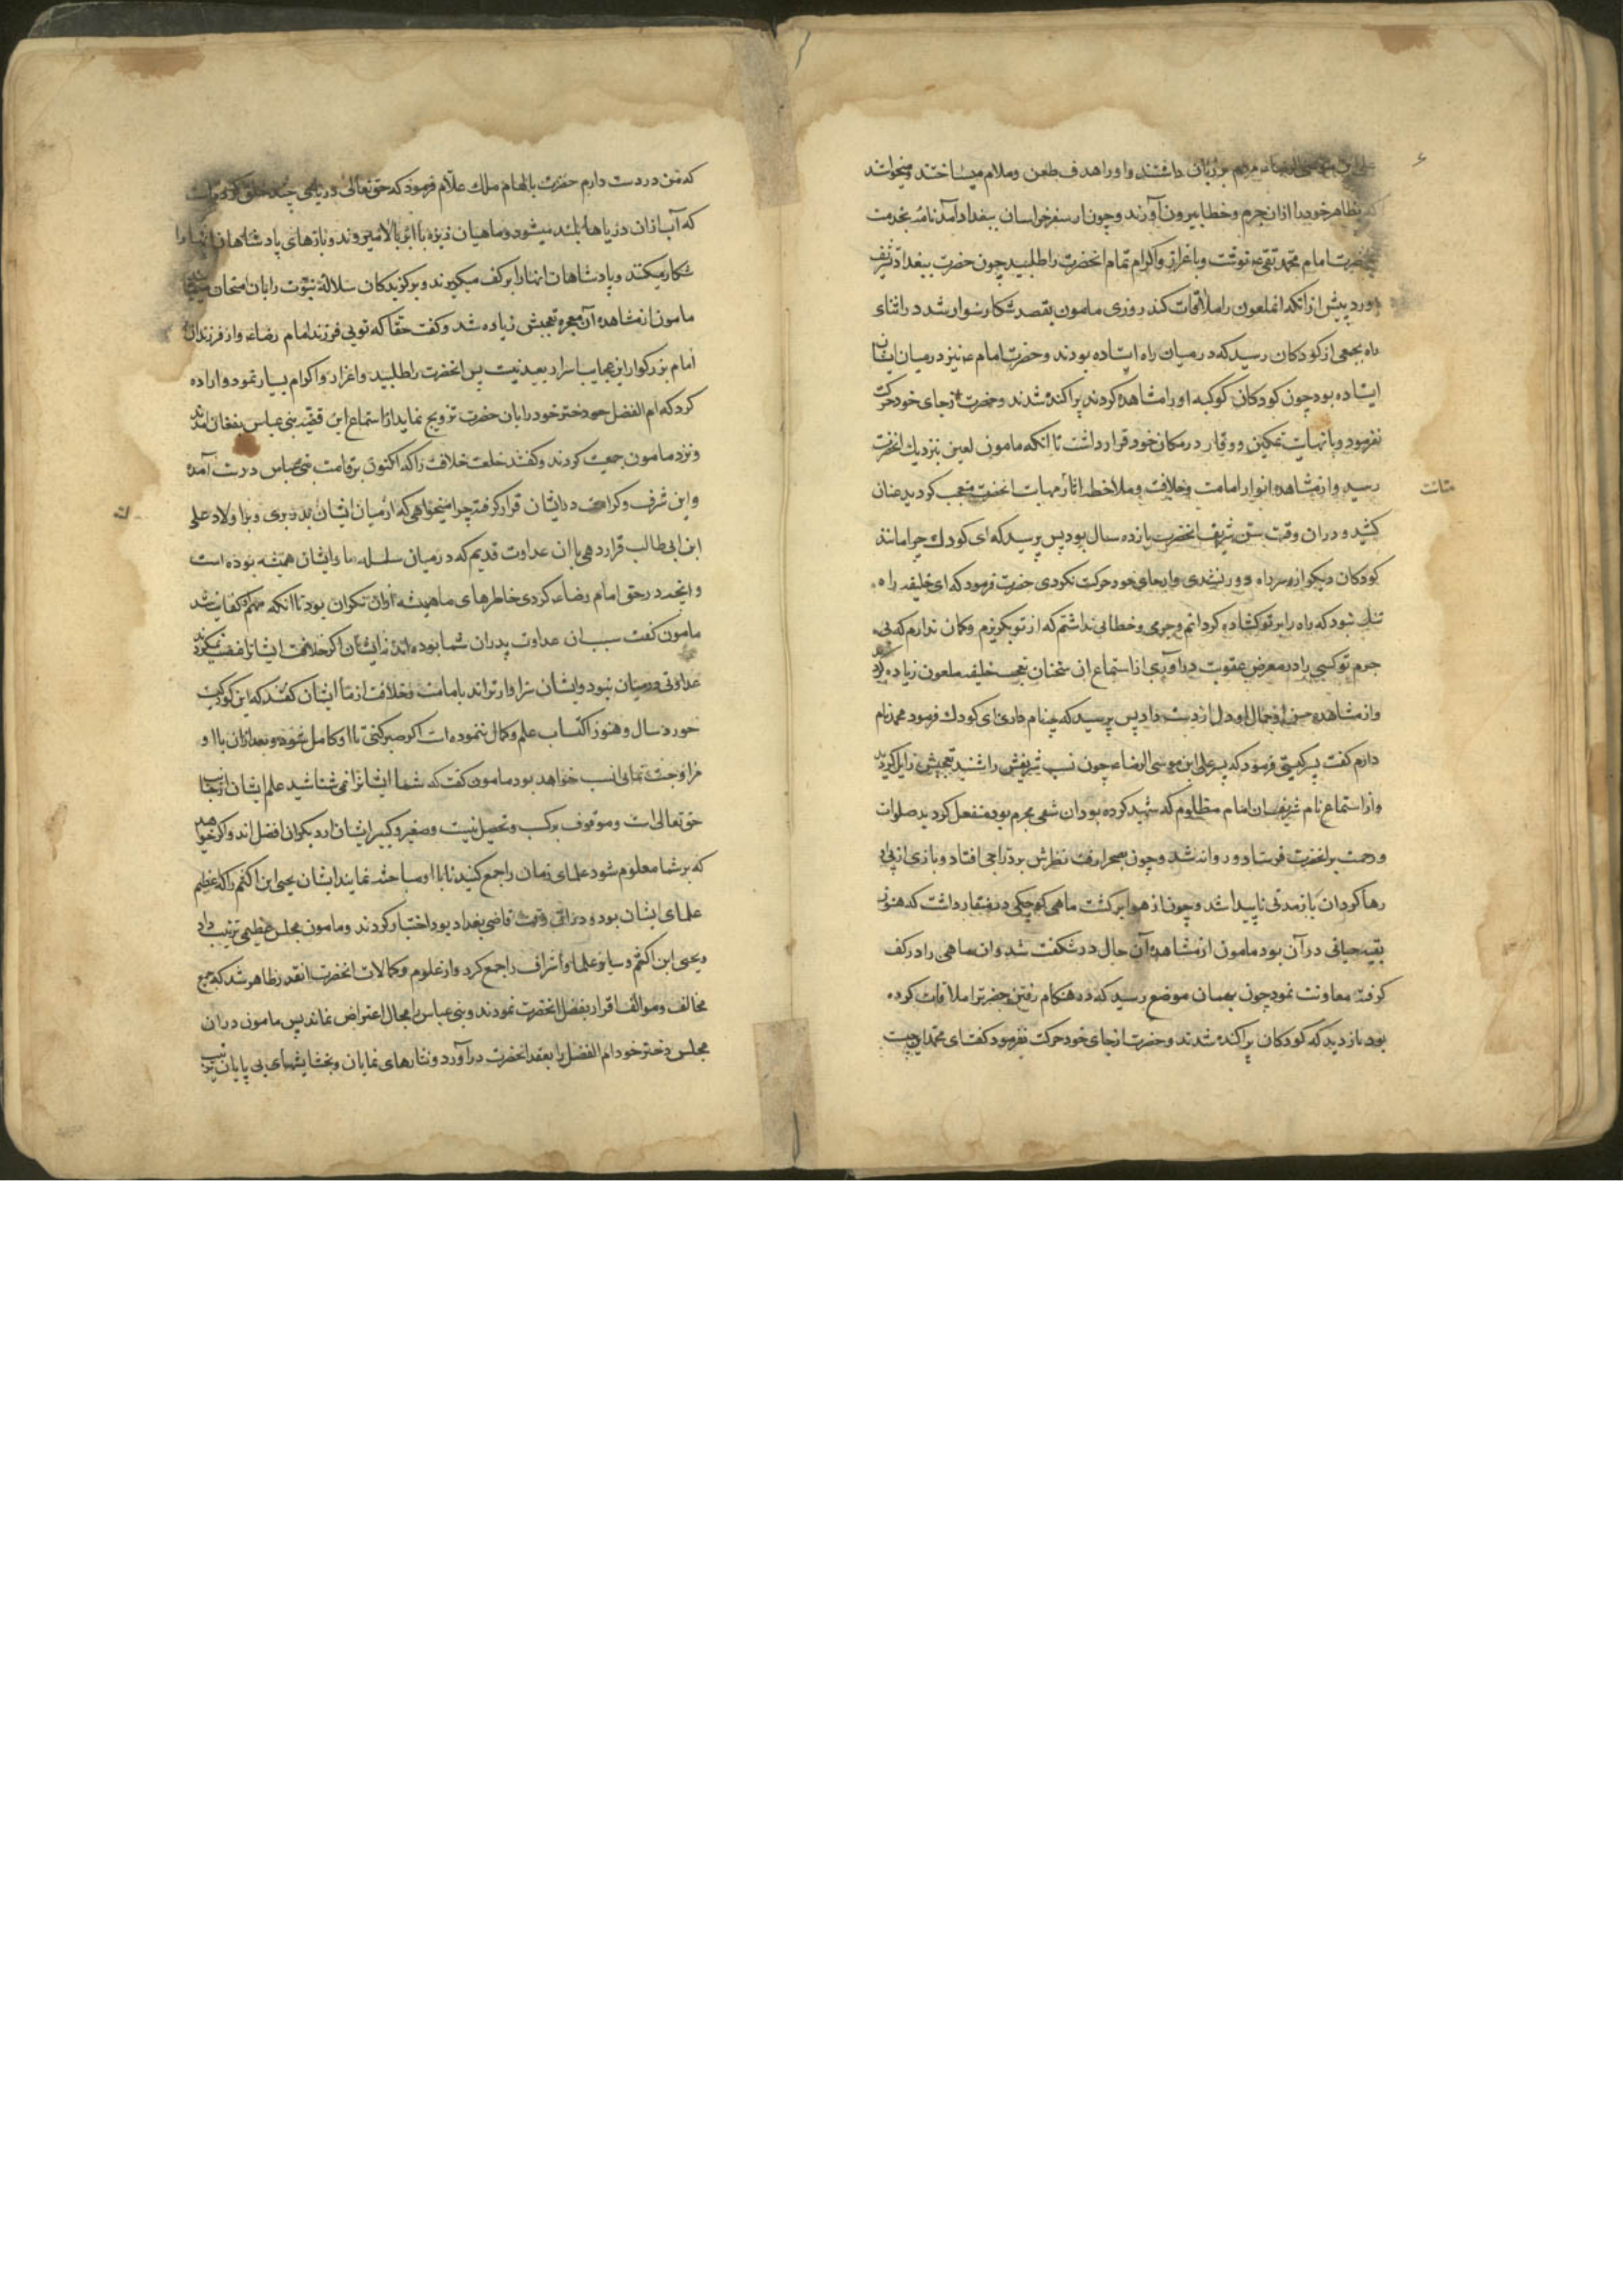 علی ابن موسی الرضاء مردم بر زبان داشتند واورا هدف طعن وملام میساختند ومیخواستند
که بظاهر خود را ازان جرم وخطا بیرون آورند وچون از سفر خراسان ببغداد آمد نامه بخدمت
حضرت امام محمد تقی ع نوشت وباعزاز واکرام تمام انحضرت را طلبید چون حضرت ببغداد تشریف
آورد پیش ازانکه انملعون را ملاقات کند روزی مامون بقصد شکار سوار شد در اثنای
راه بجمعی از کودکان رسید که در میان راه ایستاده بودند وحضرت امام ع نیز در میان ایشان
ایستاده بود چون کودکان کوکبه اورا مشاهده کردند پراکنده شدند وحضرت از جای خود حرکت
نفرمود وبا نهایت تمکین ووقار در مکان خود قرار داشت تا انکه مامون لعین بنزدیک انحضرت
رسید واز مشاهده انوار امامت وخلافت وملاحظه اثار مهابت انحضرت متعجب کردید عنان
متانت
کشید ودران وقت سن شریف انحضرت یازده سال بود پس پرسید که ای کودک چرا مانند
کودکان دیکر از سر راه دور نشدی واز جای خود حرکت نکردی حضرت فرمود که ای خلیفه راه
تنک نبود که راه را بر تو کشاده کردانم وجرمی وخطایی نداشتم که از تو بکریزم وکمان ندارم که بی
جرم تو کسی را در معرض عقوبت در اوری از استماع ان سخنان تعجب خلیفه ملعون زیاده شد
واز مشاهده حسن وجمال او دل از دست داد پس پرسید که چه نام داری ای کودک فرمود محمد نام
دارم کفت پسر کیستی فرمود که پسر علی ابن موسی الرضاء چون نسب شریفش را شنید تعجبش زایل کردید
واز استماع نام شریف ان امام مظلوم که شهید کرده بود ان شقی مجرم بود منفعل کردید صلوات
ورحمت بر انحضرت فرستاد وروانه شد وچون بصحرا رفت نظرش بر دراجی افتاد وبازی از پی او
رها کرد ان باز مدتی ناپیدا شد وچون از هوا برکشت ماهی کوچکی در منقار داشت که هنوز
بقیه حیاتی در آن بود مامون از مشاهده آن حال در شکفت شد وان ماهی را در کف
کرفته معاودت نمود چون بهمان موضع رسید که در هنکام رفتن حضرت را ملاقات کرده
بود باز دید که کودکان پراکنده شدند وحضرت از جای خود حرکت نفرمود کفت ای محمد این چیست
که من در دست دارم حضرت بالهام ملک علام فرمود که حق تعالی دریای چند خلق کرده است
که آب ازان دریاها بلند میشود وماهیان ریزه با ابر بالا میروند وبازهای پادشاهان انها را
شکار میکنند وپادشاهان انها را بر کف میکیرند وبرکزیدکان سلاله نبوت را بان امتحان مینمایند
مامون از مشاهده آن معجزه تعجبش زیاده شد وکفت حقا که تویی فرزند امام رضاء واز فرزندان
امام بزرکوار این عجایب اسرار بعید نیست پس انحضرت را طلبید واعزاز واکرام بسیار نمود واراده
کرد که ام الفضل دختر خود را بان حضرت تزویج نماید از استماع این قضیه بنی عباس بفغان آمدند
ونزد مامون جمعیت کردند وکفتند خلعت خلافت را که اکنون بر قامت بنی عباس درست آمده
واین شرف وکرامت در ایشان قرار کرفته چرا میخواهی که از میان ایشان بدر بری وبر اولاد علی
ابن ابی طالب قرار دهی با ان عداوت قدیم که در میان سلسله ما وایشان همیشه بوده است
وانچه در حق امام رضاء کردی خاطرهای ما همیشه ازان نکران بود تا انکه مهم او کفایت شد
مامون کفت سبب ان عداوت پدران شما بوده اند نه ایشان اکر خلافت ایشان را غصب نمیکردند
عداوتی در میان نبود وایشان سزاوارترند بامامت وخلافت از ما ایشان کفتند که این کودکیست
خورد سال وهنوز اکتساب علم وکمال ننموده است اکر صبر کنی تا او کامل شود وبعد ازان با او
مزاوجت نمایی انسب خواهد بود مامون کفت که شما ایشان را نمی شناسید علم ایشان از جانب
حق تعالی است وموقوف بر کسب وتحصیل نیست وصغیر وکبیر ایشان از دیکران افضل اند واکر خواهید
که بر شما معلوم شود علمای زمان را جمع کنید تا با او مباحثه نمایند ایشان یحیی ابن اکثم را که اعظم
علمای ایشان بود ودر ان وقت قاضی بغداد بود اختیار کردند ومامون مجلس عظیمی ترتیب داد
ویحیی ابن اکثم وسایر علما واشراف را جمع کرد واز علوم وکمالات انحضرت انقدر ظاهر شد که جمیع
مخالف وموالف اقرار بفضل انحضرت نمودند وبنی عباس را مجال اعتراض نماند پس مامون دران
مجلس دختر خود ام الفضل را بعقد انحضرت در آورد ونثارهای نمایان وبخشایشهای بی پایان ترتیب